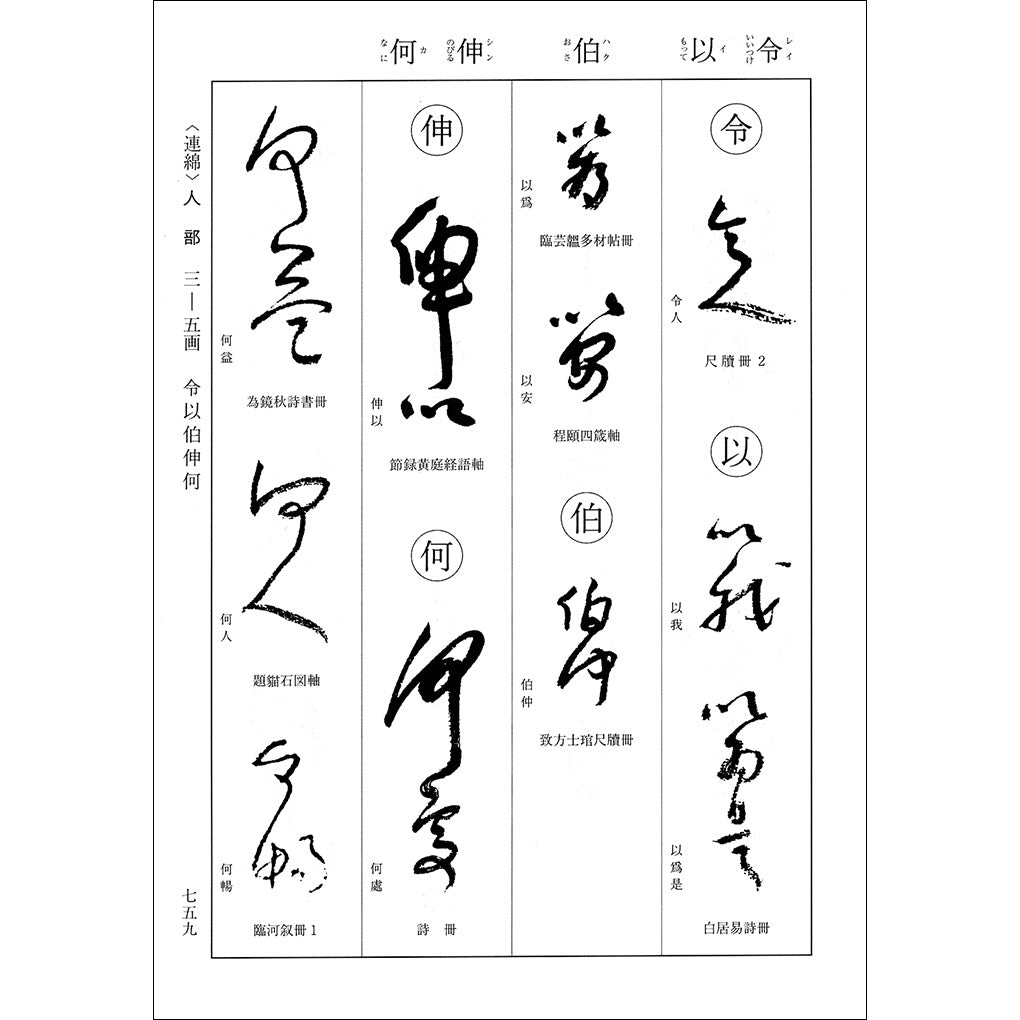 令 レイ いいつけ
以 イ もって
伯 ハク おさ
伸 シン のびる
何 カ なに
令
令人
尺牘冊 2
以
以我
以爲是
白居易詩冊
以爲
臨芸韞多材帖冊
以安
程頤四箴軸
伯
伯仲
致方士琯尺牘冊
伸
伸以
節録黄庭経語軸
何
何處
詩冊
何益
為鏡秋詩書冊
何人
題貓石図軸
何暢
臨河叙冊 1
〈連綿〉人部 三―五画 令以伯伸何
七五九